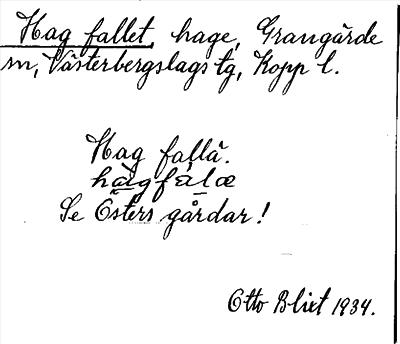 Hag fallet, hage, Grangärde
sn, Västerbergslags tg, Kopp l.
Hag fallä.
hagfalæ
Se Östers gårdar!
Otto Blixt 1934.